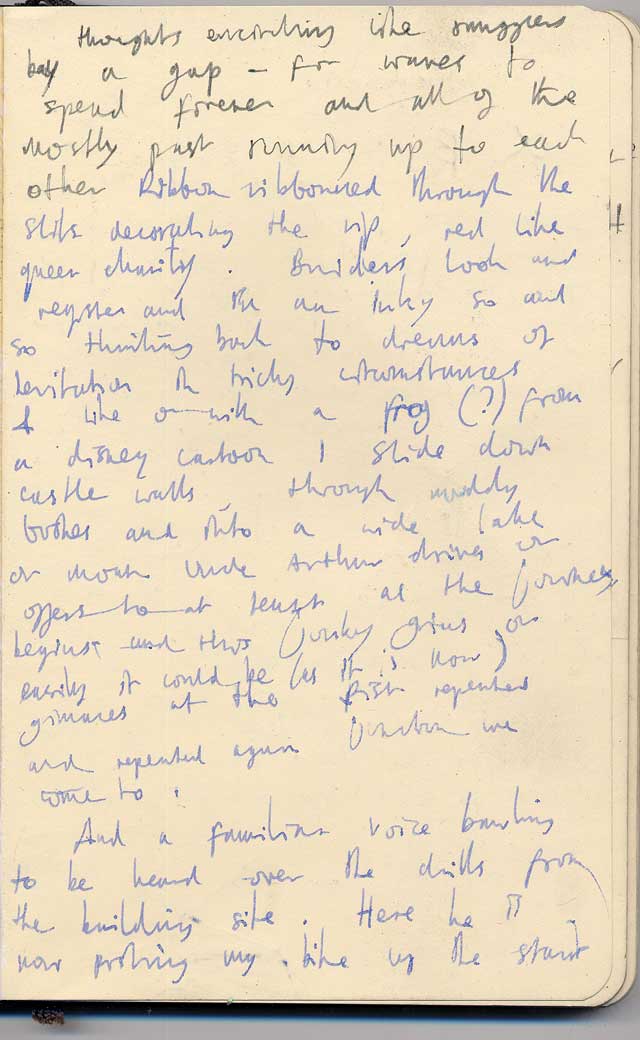 thoughts encircling like smugglers
bay a gap – for waves to
spend forever and all of the
mostly past running up to each
other Ribbon ribboned through the
slits decorating the rip, red like
queen charity. Builders look and
register and in an inky so and
so thinking back to dreams of
levitation in tricky circumstances
& like with a frog (?) from
a disney cartoon I slide down
castle walls, through muddy
bushes and into a wide lake
or moat Uncle Arthur drives or
offers to at least as the journey
begins and this grins or
easily it could be (as it is now)
grimaces at the first repeated
and repeated again junction we
come to.
And a familiar voice bawling
to be heard over the drills from
the building site. Here he is
now my bike up the stand